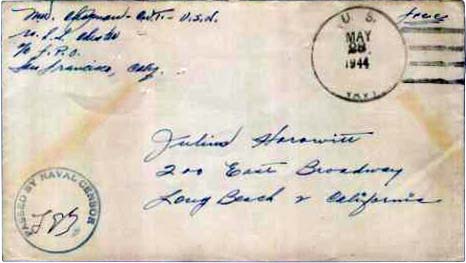 U.S.S. Chester
℅ F.P.O.
San Francisco, Calif.
U. S.
MAY
28
1944
NAVY
free
Julius Horowitz
200 East Broadway
Long Beach 2 California
PASSED BY NAVAL CENSOR